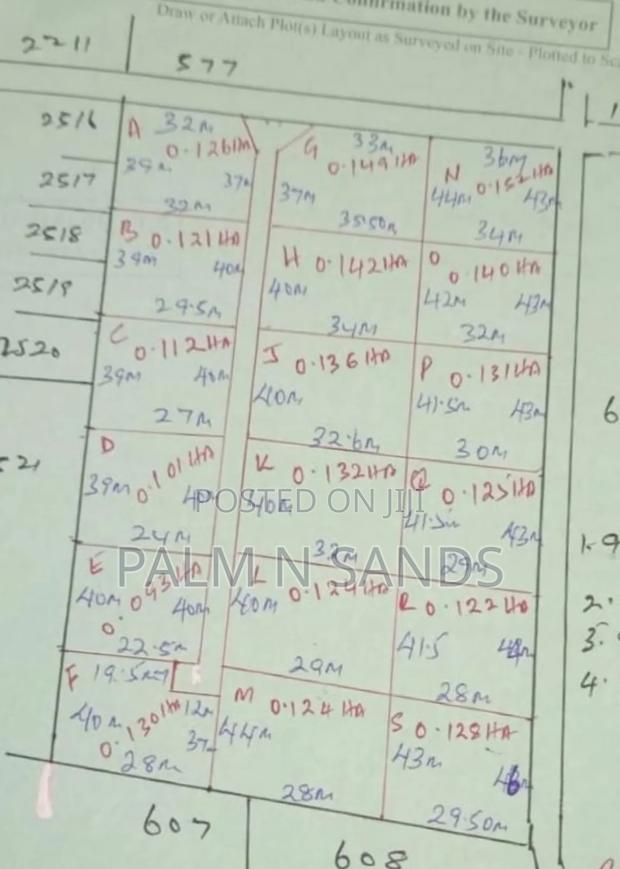 Confirmation by the Surveyor
Draw or Attach Plot(s) Layout as Surveyed on Site - Plotted to
2211
577
2516
2517
2518
2519
2520
A 32m
0.126HA
39m
37m
32m
B 0.121HA
39m
40m
29.5m
C
0.112HA
39m
40m
27m
D
0.101HA
39m
40m
24m
E
0.093HA
40m
40m
22.5m
F 19.5m
0.130HA
40m
12m
37m
28m
G 33m
0.149HA
37m
35.50m
H 0.142HA
40m
34m
J 0.136HA
40m
32.6m
K 0.132HA
32m
L
40m
29m
M 0.124HA
44m
28m
N 36m
0.152HA
44m
43m
34m
O
0.140HA
42m
43m
32m
P 0.131HA
41.5m
43m
30m
Q 0.125HA
41.5m
43m
29m
R 0.122HA
41.5
28m
S 0.128HA
43m
29.50m
607
608
6
2.
3.
4.
POSTED ON JIJI
PALM N SANDS